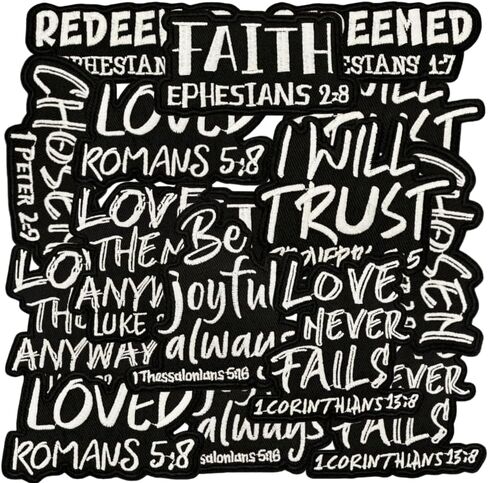 REDEE
EEMED
PHESIAN
ESIANS 1:7
FAITH
EPHESIANS 2:8
CHOSE
1 PETER 2:9
LOVED
ROMANS 5:8
I WILL
TRUST
CHOSEN
LOVE
THEM
ANYW
LUKE
LO
TH
ANYWAY
Be
joyful
always
1 Thessalonians 5:16
LOVE
NEVER
FAILS
1 CORINTHIANS 13:8
EVER
FAILS
1 CORINTHIANS 13:8
LOVED
ROMANS 5:8
always
salonians 5:16